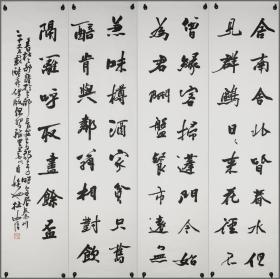 舍南舍北皆春水但
見群鷗日日來花徑不
曾緣客掃蓬門今始
為君開盤飧市遠無
兼味樽酒家貧只舊
醅肯與鄰翁相對飲
隔籬呼取盡餘盃